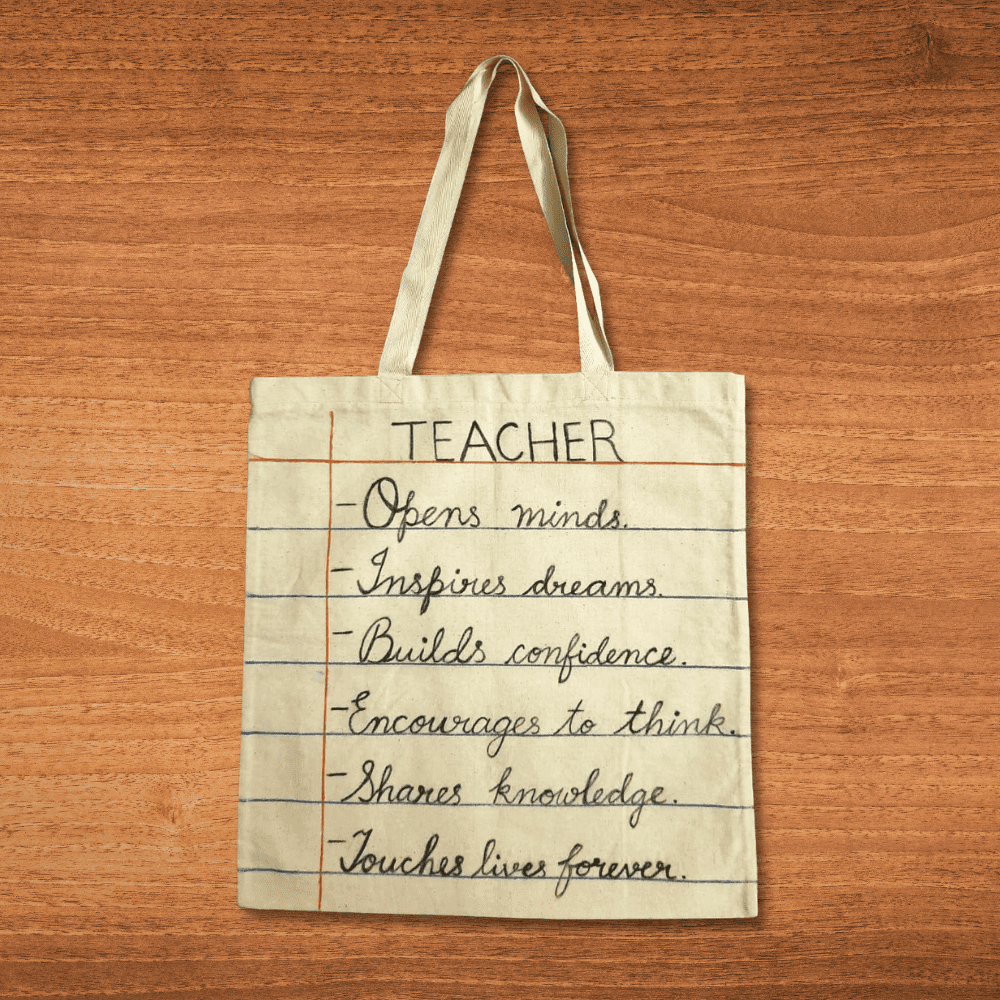 TEACHER
- Opens minds.
- Inspires dreams.
- Builds confidence.
- Encourages to think.
- Shares knowledge.
- Touches lives forever.